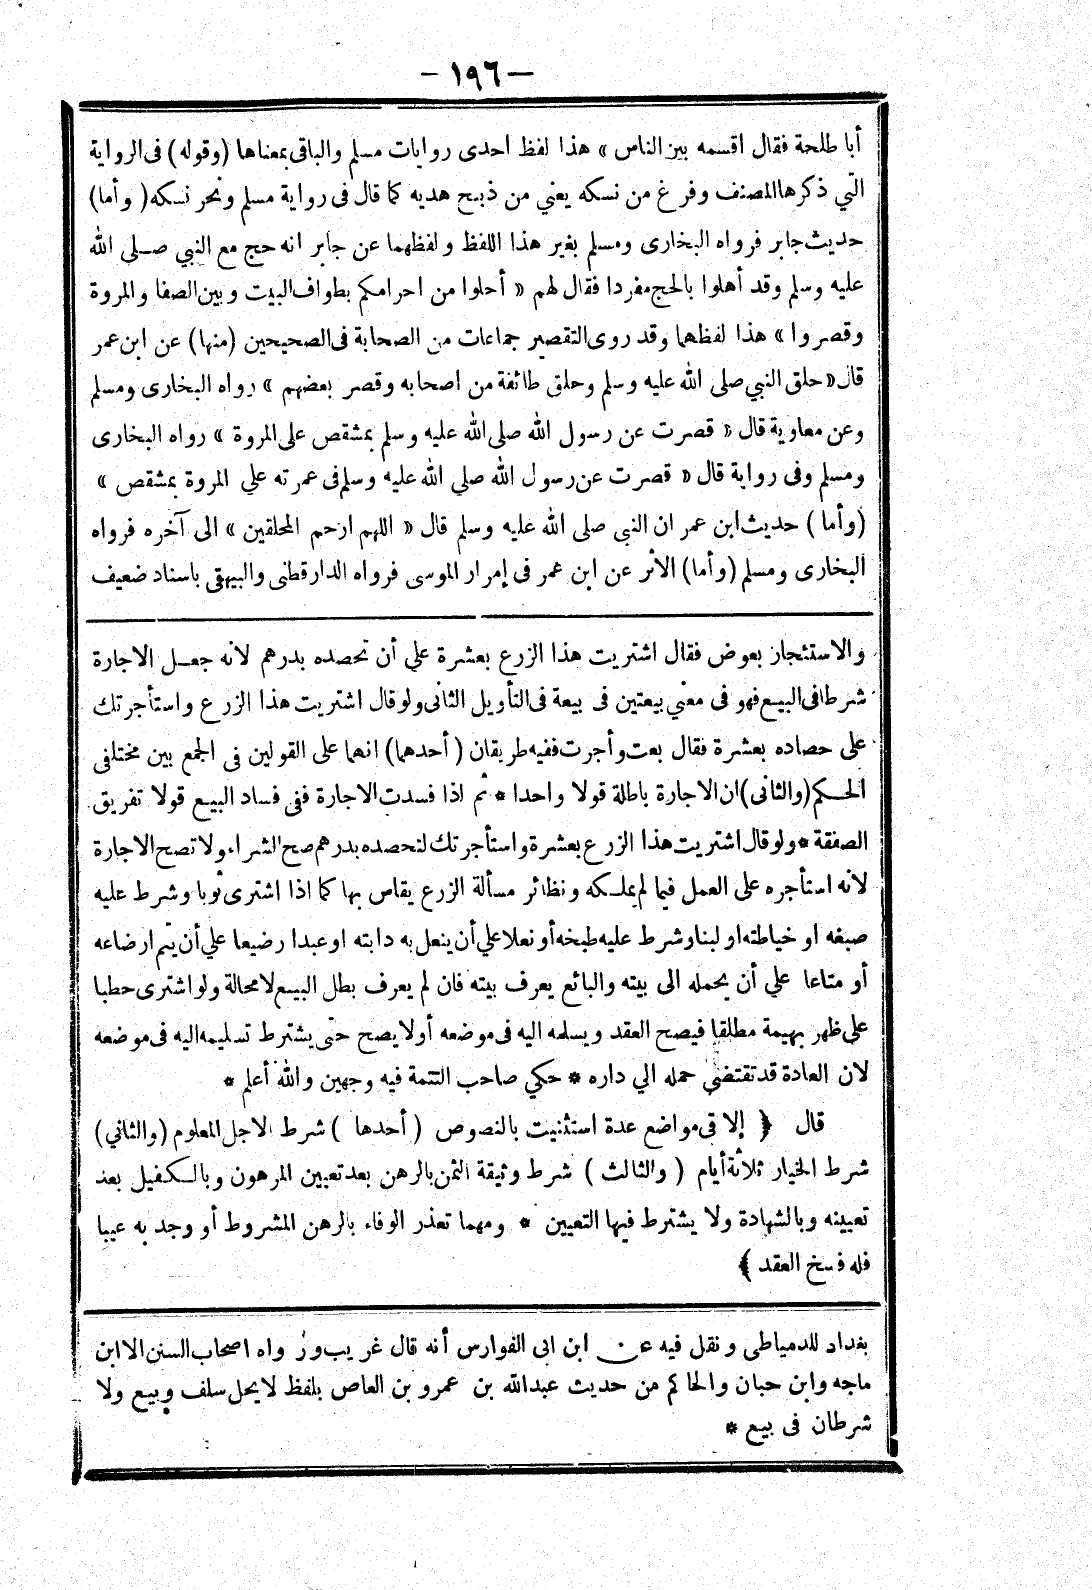 - ١٩٦ -
أبا طلحة فقال اقسمه بين الناس » هذا لفظ احدى روايات مسلم والباقى بمعناها (وقوله) فى الرواية
التي ذكرها المصنف وفرغ من نسكه يعني من ذبح هديه كما قال فى رواية مسلم ونحر نسكه (وأما)
حديث جابر فرواه البخارى ومسلم بغير هذا اللفظ ولفظهما عن جابر انه حج مع النبي صلى الله
عليه وسلم وقد أهلوا بالحج مفردا فقال لهم « أحلوا من احرامكم بطواف البيت وبين الصفا والمروة
وقصروا » هذا لفظهما وقد روى التقصير جماعات من الصحابة فى الصحيحين (منها) عن ابن عمر
قال « حلق النبي صلى الله عليه وسلم وحلق طائفة من اصحابه وقصر بعضهم » رواه البخارى ومسلم
وعن معاوية قال « قصرت عن رسول الله صلى الله عليه وسلم بمشقص على المروة » رواه البخارى
ومسلم وفى رواية قال « قصرت عن رسول الله صلي الله عليه وسلم فى عمرته علي المروة بمشقص »
(وأما) حديث ابن عمر ان النبي صلى الله عليه وسلم قال « اللهم ارحم المحلقين » الى آخره فرواه
البخارى ومسلم (وأما) الأثر عن ابن عمر فى إمرار الموسى فرواه الدارقطنى والبيهقى باسناد ضعيف
والاستئجار بعوض فقال اشتريت هذا الزرع بعشرة علي أن تحصده بدرهم لانه جعل الاجارة
شرطا فى البيع فهو فى معني بيعتين فى بيعة فى التأويل الثانى ولو قال اشتريت هذا الزرع واستأجرتك
على حصاده بعشرة فقال بعت وأجرت ففيه طريقان (أحدهما) انهما على القولين فى الجمع بين مختلفى
الحكم (والثانى) ان الاجارة باطلة قولا واحدا * ثم اذا فسدت الاجارة ففى فساد البيع قولا تفريق
الصفقة * ولو قال اشتريت هذا الزرع بعشرة واستأجرتك لتحصده بدرهم صح الشراء ولا تصح الاجارة
لانه استأجره على العمل فيما لم يملكه ونظائر مسألة الزرع يقاس بها كما اذا اشترى ثوبا وشرط عليه
صبغه او خياطته او لبنا وشرط عليه طبخه أو نعلا علي أن ينعل به دابته او عبدا رضيعا علي أن يتم ارضاعه
أو متاعا علي أن يحمله الى بيته والبائع يعرف بيته فان لم يعرف بطل البيع لا محالة ولو اشترى حطبا
على ظهر بهيمة مطلقا فيصح العقد ويسلمه اليه فى موضعه أو لا يصح حتى يشترط تسليمه اليه فى موضعه
لان العادة قد تقتضى حمله الي داره * حكي صاحب التتمة فيه وجهين والله أعلم *
قال ﴿ إلا فى مواضع عدة استثنيت بالنصوص (أحدها) شرط الاجل المعلوم (والثاني)
شرط الخيار ثلاثة أيام (والثالث) شرط وثيقة الثمن بالرهن بعد تعيين المرهون وبالكفيل بعد
تعيينه وبالشهادة ولا يشترط فيها التعيين * ومهما تعذر الوفاء بالرهن المشروط أو وجد به عيبا
فله فسخ العقد ﴾
بغداد للدمياطى ونقل فيه عن ابن ابى الفوارس أنه قال غريب ورواه اصحاب السنن الا ابن
ماجه وابن حبان والحاكم من حديث عبدالله بن عمرو بن العاص بلفظ لا يحل سلف وبيع ولا
شرطان فى بيع *